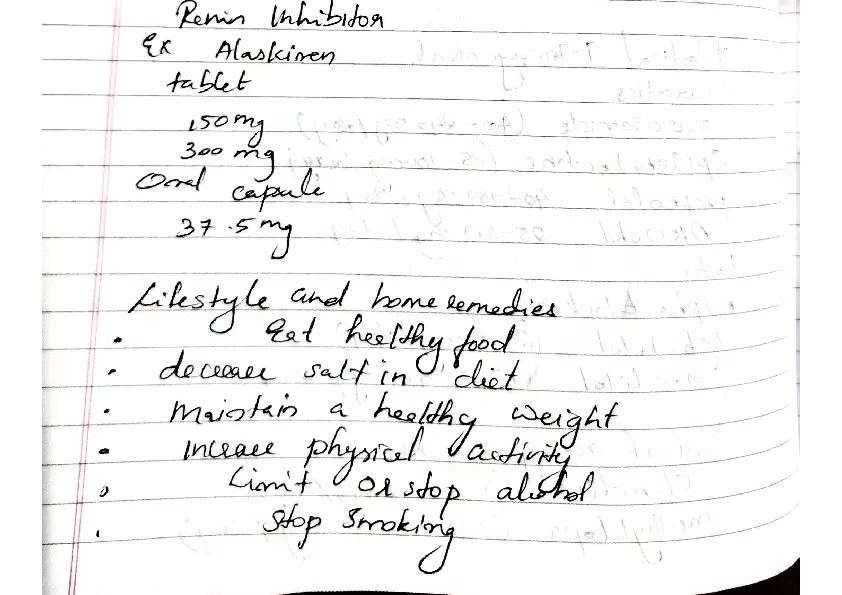 Renin Inhibitor
Ex Alaskiren
tablet
150mg
300 mg
Oral capule
37.5mg
Lifestyle and home remedies
• Eat healthy food
• decreare salt in diet
• Maintain a healthy weight
• increare physical activity
• Limit or stop alcohol
• Stop Smoking